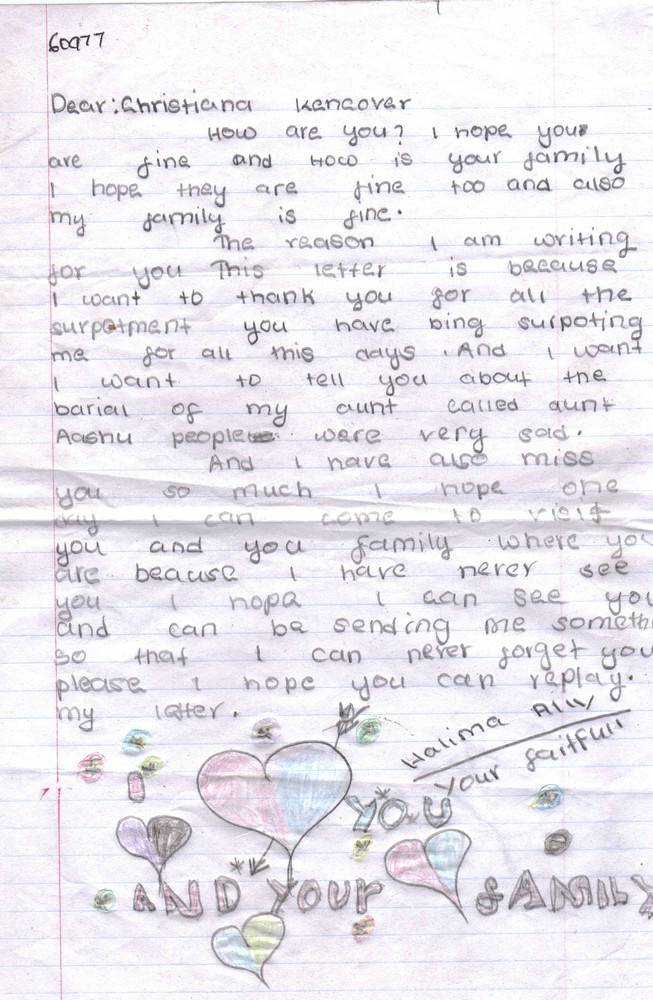 60977
Dear: Christiana Kencover
How are you? I hope your
are fine and How is your family
I hope they are fine too and also
my family is fine.
The reason I am writing
for you This letter is because
I want to thank you for all the
surpotment you have bing surpoting
me for all this days. And I want
I want to tell you about the
barial of my aunt called aunt
Aashu people were very sad.
And I have also miss
you so much I hope one
day I can come to visit
you and you family where you
are beause I have never see
you I hope I can see you
and can be sending me somethi
so that I can never forget you
please I hope you can replay.
my latter.
Halima Ally
Your faitfull
I YOU
AND YOUR FAMILY